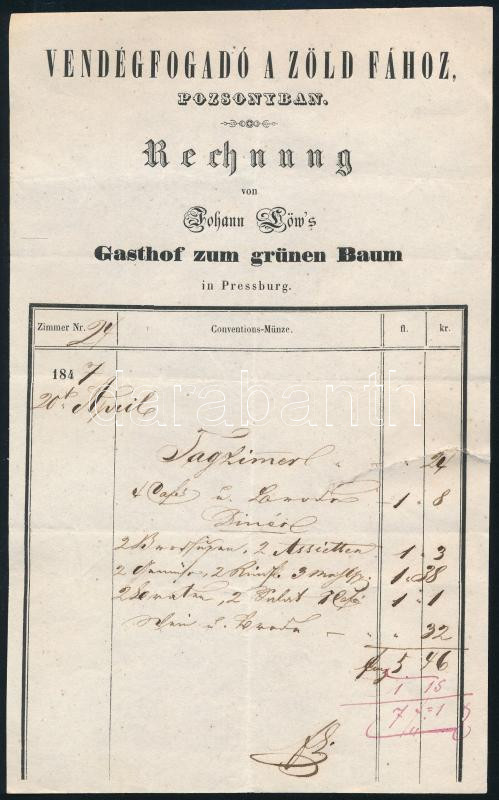 VENDÉGFOGADÓ A ZÖLD FÁHOZ,
POZSONYBAN.
Rechnung
von
Johann Löw's
Gasthof zum grünen Baum
in Pressburg.
Zimmer Nr. 29 Conventions-Münze. fl. kr.
1847
20t April
darabanth
Tagzimer " 24
4 Café u. Brode 1 " 8
Diner
2 Brodsupen, 2 Assietten 1 " 3
2 2 Rindf. 3 1 " 38
2 Braten, 2 Salat 1 " 1
Wein u. Brode — " " 32
5 46
1 15
7 " 1